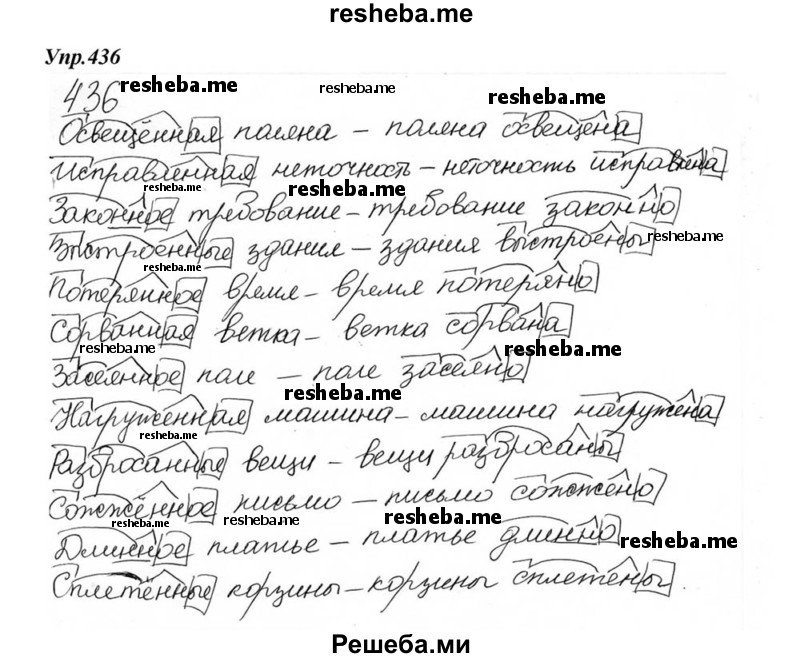 resheba.me
Упр.436
resheba.me
436
resheba.me
resheba.me
Освещённая поляна – поляна освещена
Исправленная неточность – неточность исправлена
resheba.me
resheba.me
Законное требование – требование законно
Выстроенные здания – здания выстроены
resheba.me
resheba.me
Потерянное время – время потеряно
Сорванная ветка – ветка сорвана
resheba.me
resheba.me
Засеянное поле – поле засеяно
resheba.me
Нагруженная машина – машина нагружена
resheba.me
Разбросанные вещи – вещи разбросаны
Сожжённое письмо – письмо сожжено
resheba.me
resheba.me
resheba.me
Длинное платье – платье длинно
resheba.me
Сплетённые корзины – корзины сплетены.
Решеба.ми